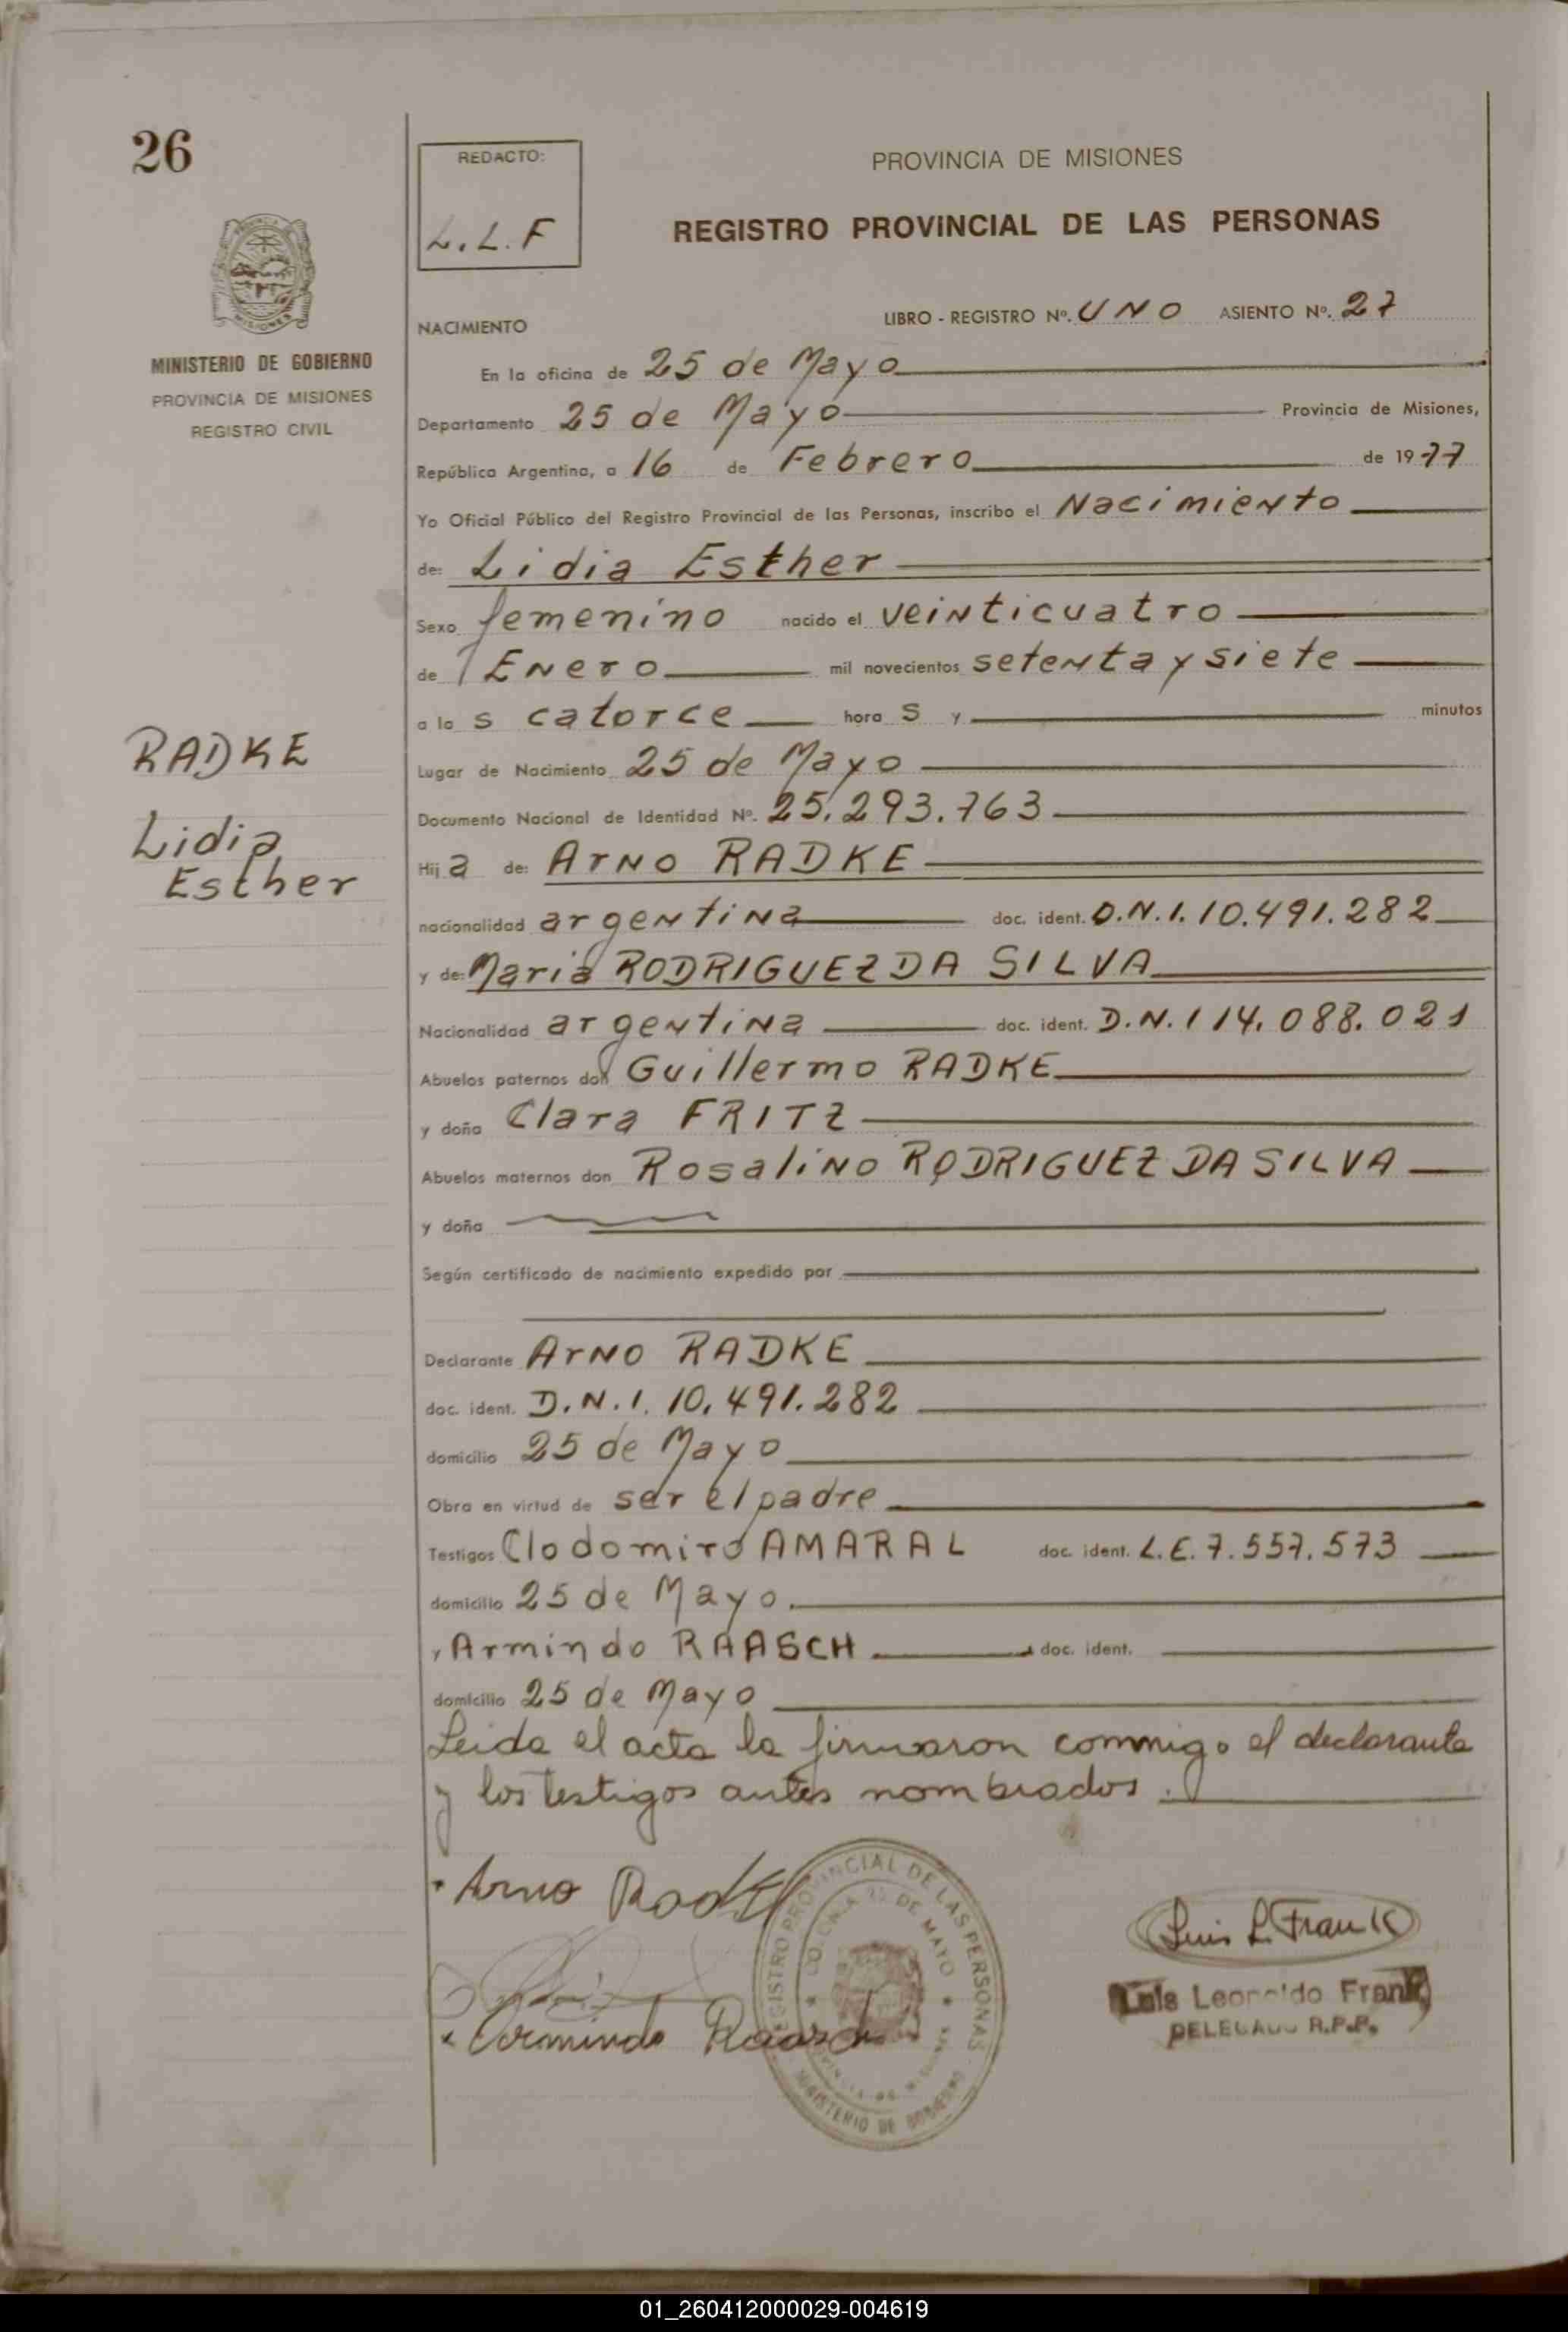 26
REDACTO:
L. L. F
PROVINCIA DE MISIONES
REGISTRO PROVINCIAL DE LAS PERSONAS
MISIONES
MINISTERIO DE GOBIERNO
PROVINCIA DE MISIONES
REGISTRO CIVIL
NACIMIENTO
LIBRO - REGISTRO Nº. UNO ASIENTO Nº. 27
En la oficina de 25 de Mayo
Departamento 25 de Mayo Provincia de Misiones,
República Argentina, a 16 de Febrero de 1977
Yo Oficial Público del Registro Provincial de las Personas, inscribo el Nacimiento
de: Lidia Esther
Sexo femenino nacido el veinticuatro
de Enero mil novecientos setenta y siete
a la s catorce hora s y minutos
RADKE
Lidia
Esther
Lugar de Nacimiento 25 de Mayo
Documento Nacional de Identidad Nº. 25.293.763
Hij a de: Arno RADKE
nacionalidad argentina doc. ident. D.N.I. 10.491.282
y de: Maria RODRIGUEZ DA SILVA
Nacionalidad argentina doc. ident. D.N.I 14.088.021
Abuelos paternos don Guillermo RADKE
y doña Clara FRITZ
Abuelos maternos don Rosalino RODRIGUEZ DA SILVA
y doña
Según certificado de nacimiento expedido por
Declarante Arno RADKE
doc. ident. D.N.I. 10.491.282
domicilio 25 de Mayo
Obra en virtud de ser el padre
Testigos Clodomiro AMARAL doc. ident. L.E. 7.557.573
domicilio 25 de Mayo
y Armindo RAASCH doc. ident.
domicilio 25 de Mayo
Leida el acta la firmaron conmigo el declarante
y los testigos antes nombrados.
Arno Radke
Armindo Raasch
REGISTRO PROVINCIAL DE LAS PERSONAS
MINISTERIO DE GOBIERNO
25 DE MAYO
Luis L. Frank
Luis Leopoldo Frank
DELEGADO R.P.P.
01_260412000029-004619